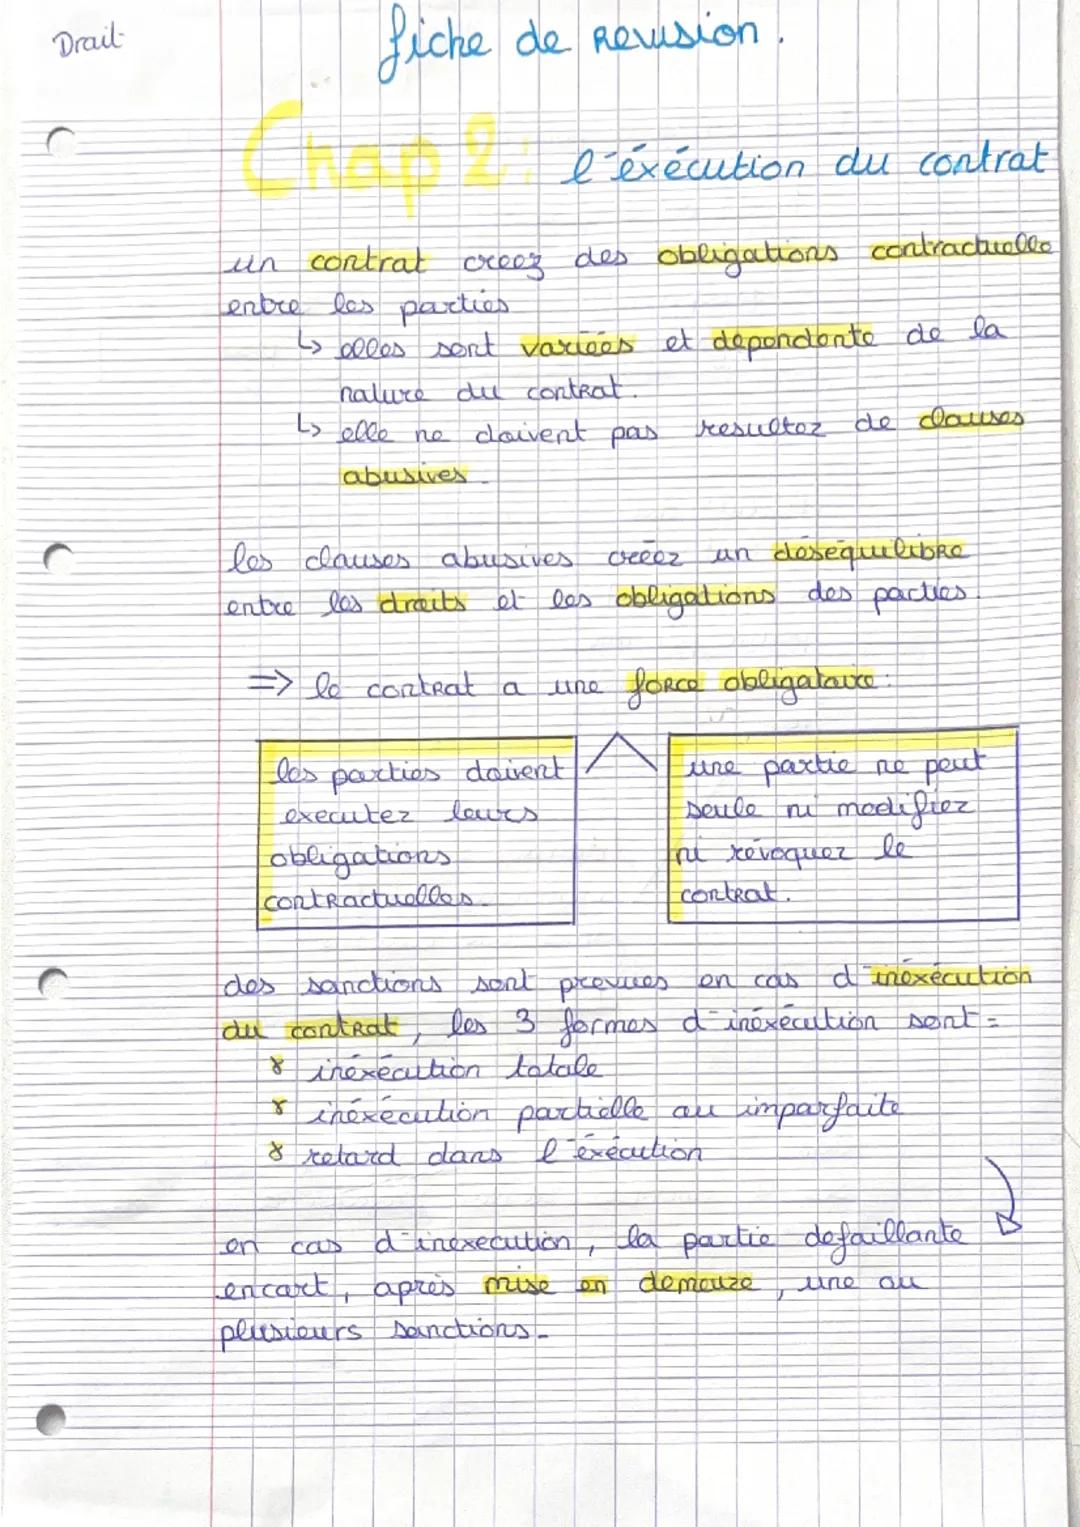 Droit
fiche de revision.
Chap 2: l'éxécution du contrat
un contrat creez des obligations contractuelle
entre les parties
↳ elles sont variées et dependente de la
nature du contrat.
↳ elle ne doivent pas resultez de clauses
abusives.
les clauses abusives créez un deséquilibre
entre les droits et les obligations des parties.
=> le contrat a une force obligatoire:
les parties doivent
executez leurs
obligations
contractuelles.
une partie ne peut
seule ni modifiez
ni révoquez le
contrat.
des sanctions sont prevues en cas d'inéxécution
du contrat, les 3 formes d'inéxécution sont =
inéxécution totale
inéxécution partielle ou imparfaite
retard dans l'éxécution
en cas d'inexecution, la partie defaillante
encourt, après mise en demeure, une ou
plusieurs sanctions.